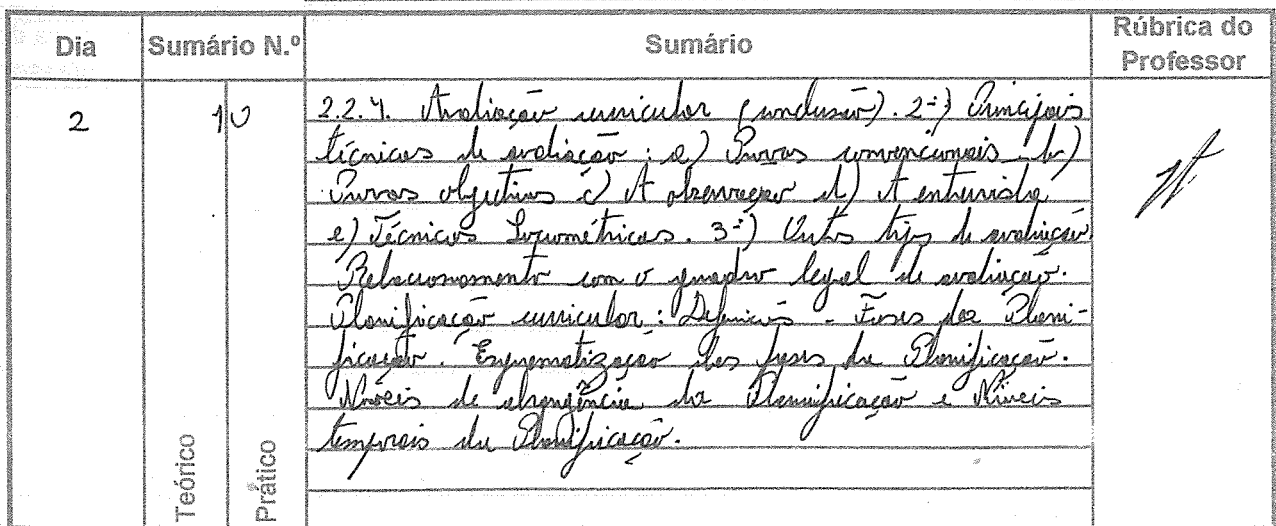 Dia
Sumário N.º
Sumário
Rúbrica do
Professor
2
10
2.2.4. Avaliação curricular (conclusão). 2-) Principais
técnicas de avaliação: a) Provas convencionais b)
Provas objetivas c) A observação d) A entrevista
e) Técnicas Sociométricas. 3-) Outros tipos de avaliação
Relacionamento com o quadro legal de avaliação.
Planificação curricular: Definições - Fases da Plani-
ficação. Esquematização das fases da Planificação.
Níveis de abrangência da Planificação e Níveis
temporais da Planificação.
Teórico
Prático